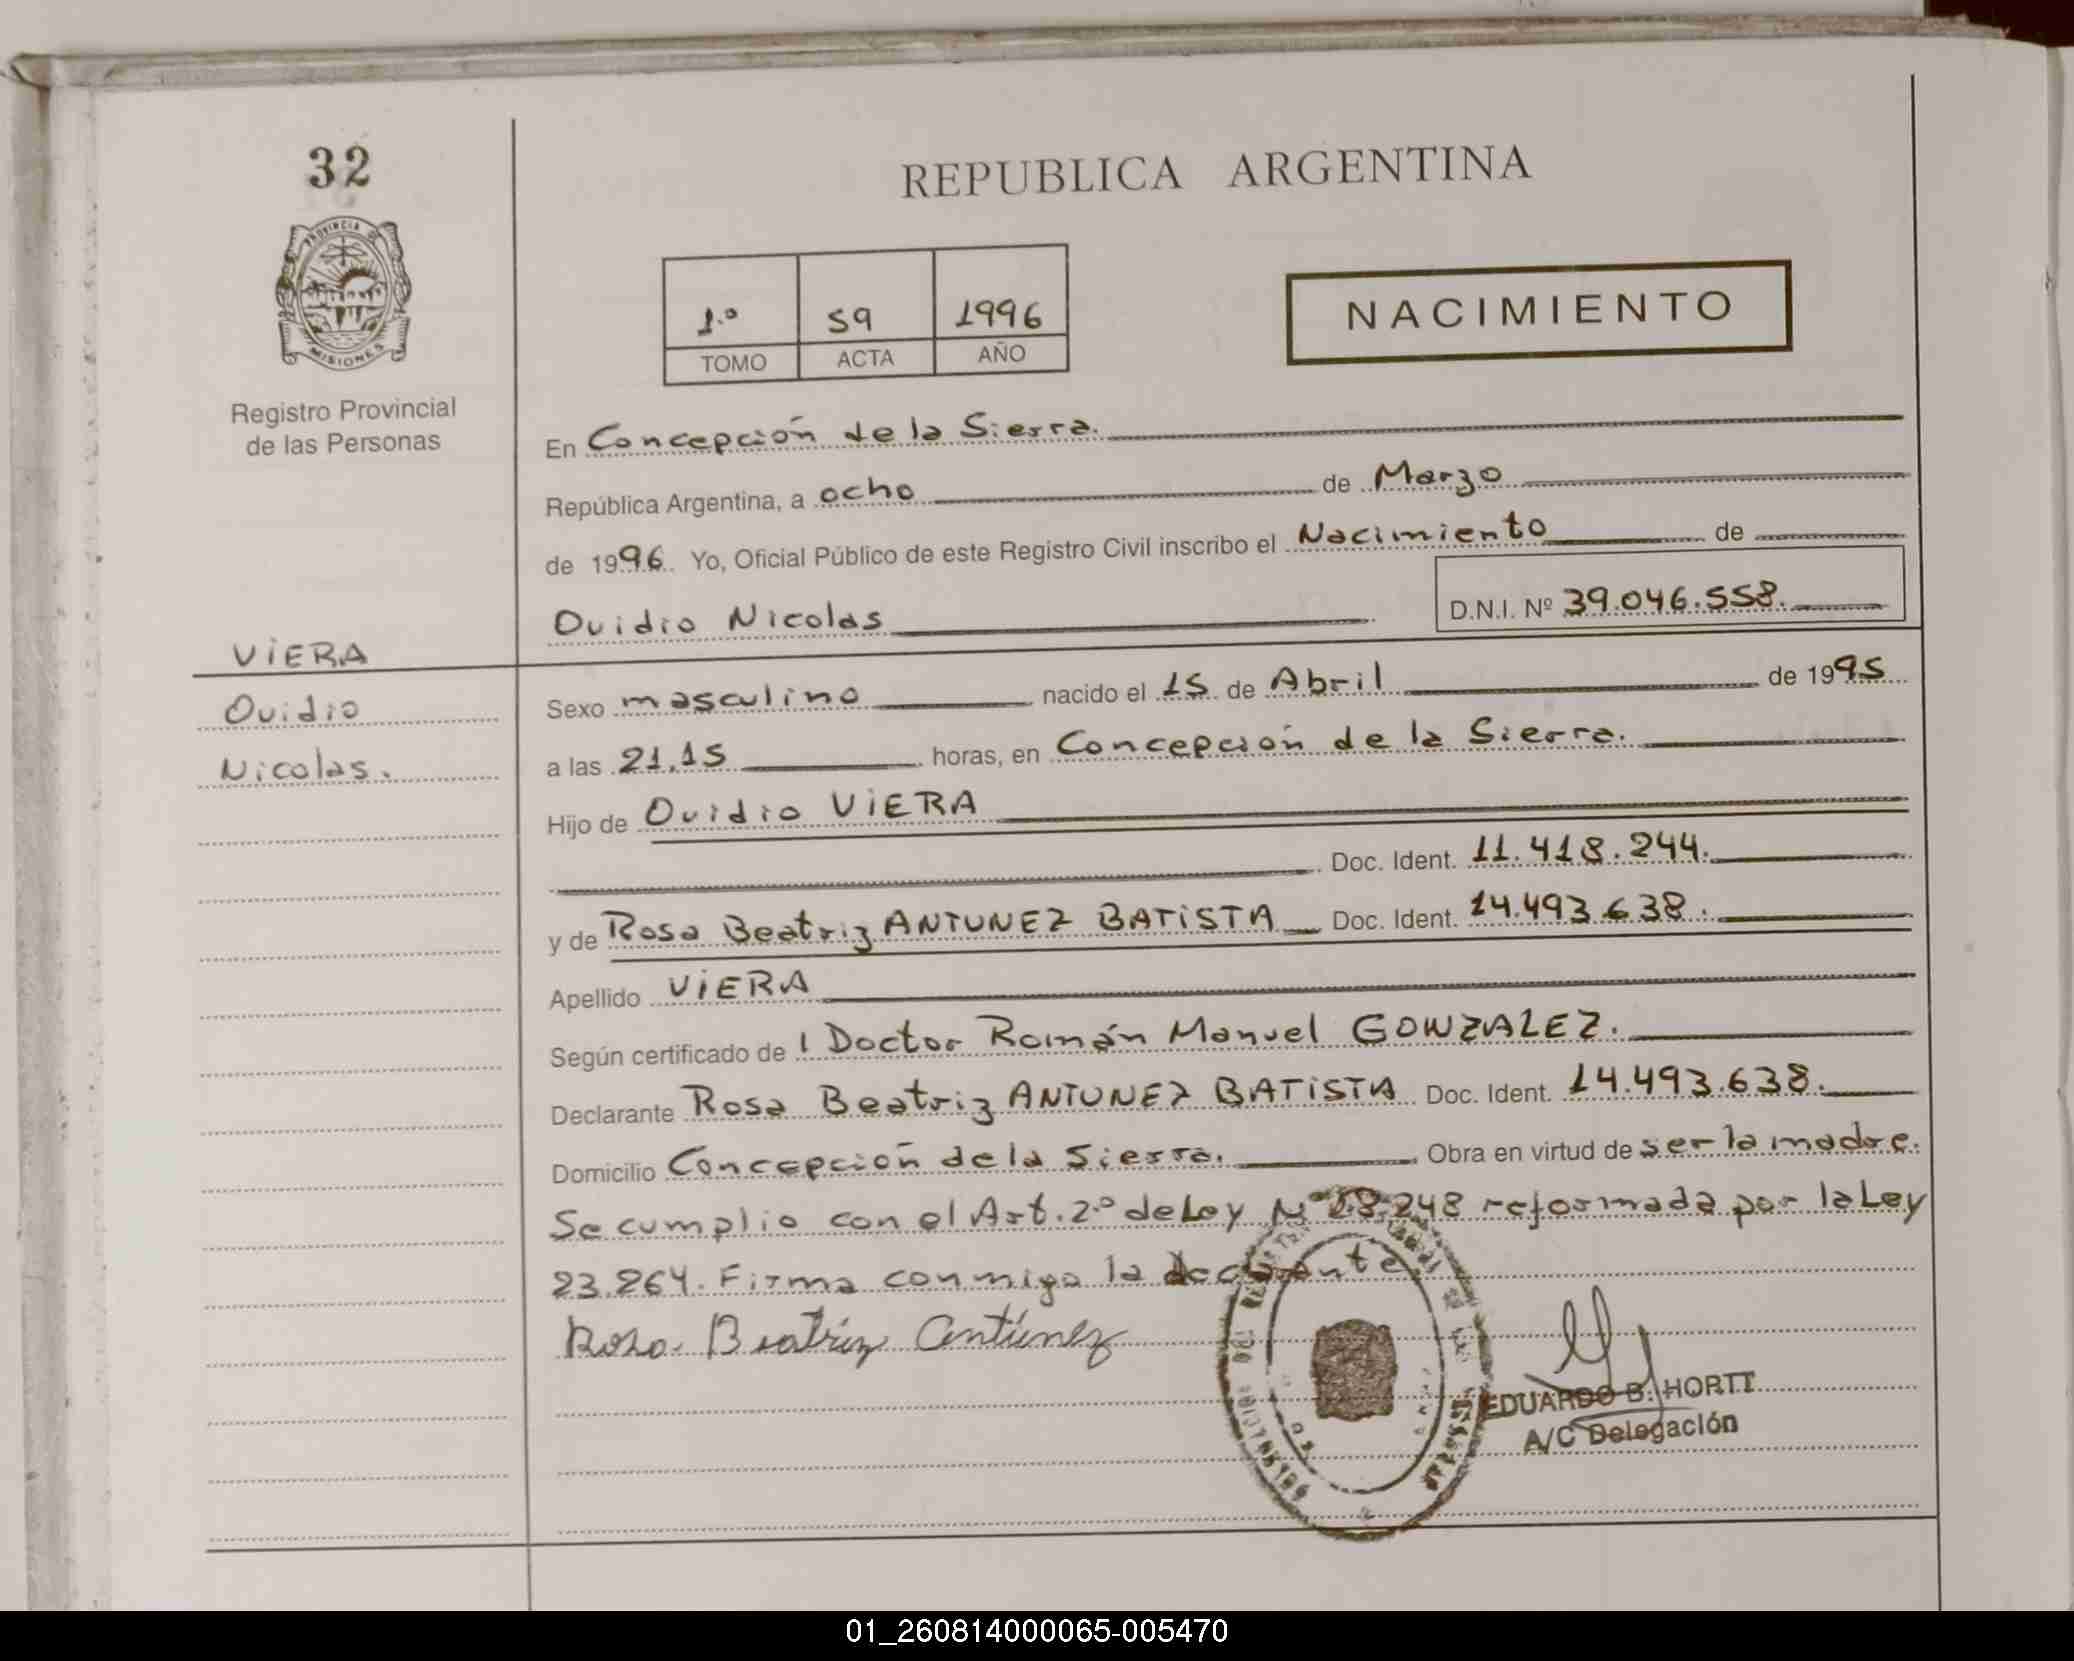 32
PROVINCIA DE
MISIONES
Registro Provincial
de las Personas
VIERA
Ovidio
Nicolas.
REPUBLICA ARGENTINA
1.º 59 1996
TOMO ACTA AÑO
NACIMIENTO
En Concepción de la Sierra.
República Argentina, a ocho de Marzo
de 1996. Yo, Oficial Público de este Registro Civil inscribo el Nacimiento de
Ovidio Nicolas D.N.I. Nº 39.046.558.
Sexo masculino nacido el 15 de Abril de 1995
a las 21,15 horas, en Concepción de la Sierra.
Hijo de Ovidio VIERA
Doc. Ident. 11.418.244.
y de Rosa Beatriz ANTUNEZ BATISTA Doc. Ident. 14.493.638.
Apellido VIERA
Según certificado de l Doctor Román Manuel GONZALEZ.
Declarante Rosa Beatriz ANTUNEZ BATISTA Doc. Ident. 14.493.638.
Domicilio Concepción de la Sierra. Obra en virtud de ser la madre.
Se cumplio con el Art. 2.º de Ley Nº 18.248 reformada por la Ley
23.264. Firma conmigo la declarante
Rosa Beatriz Antúnez
EDUARDO B. HORTT
A/C Delegación
01_260814000065-005470